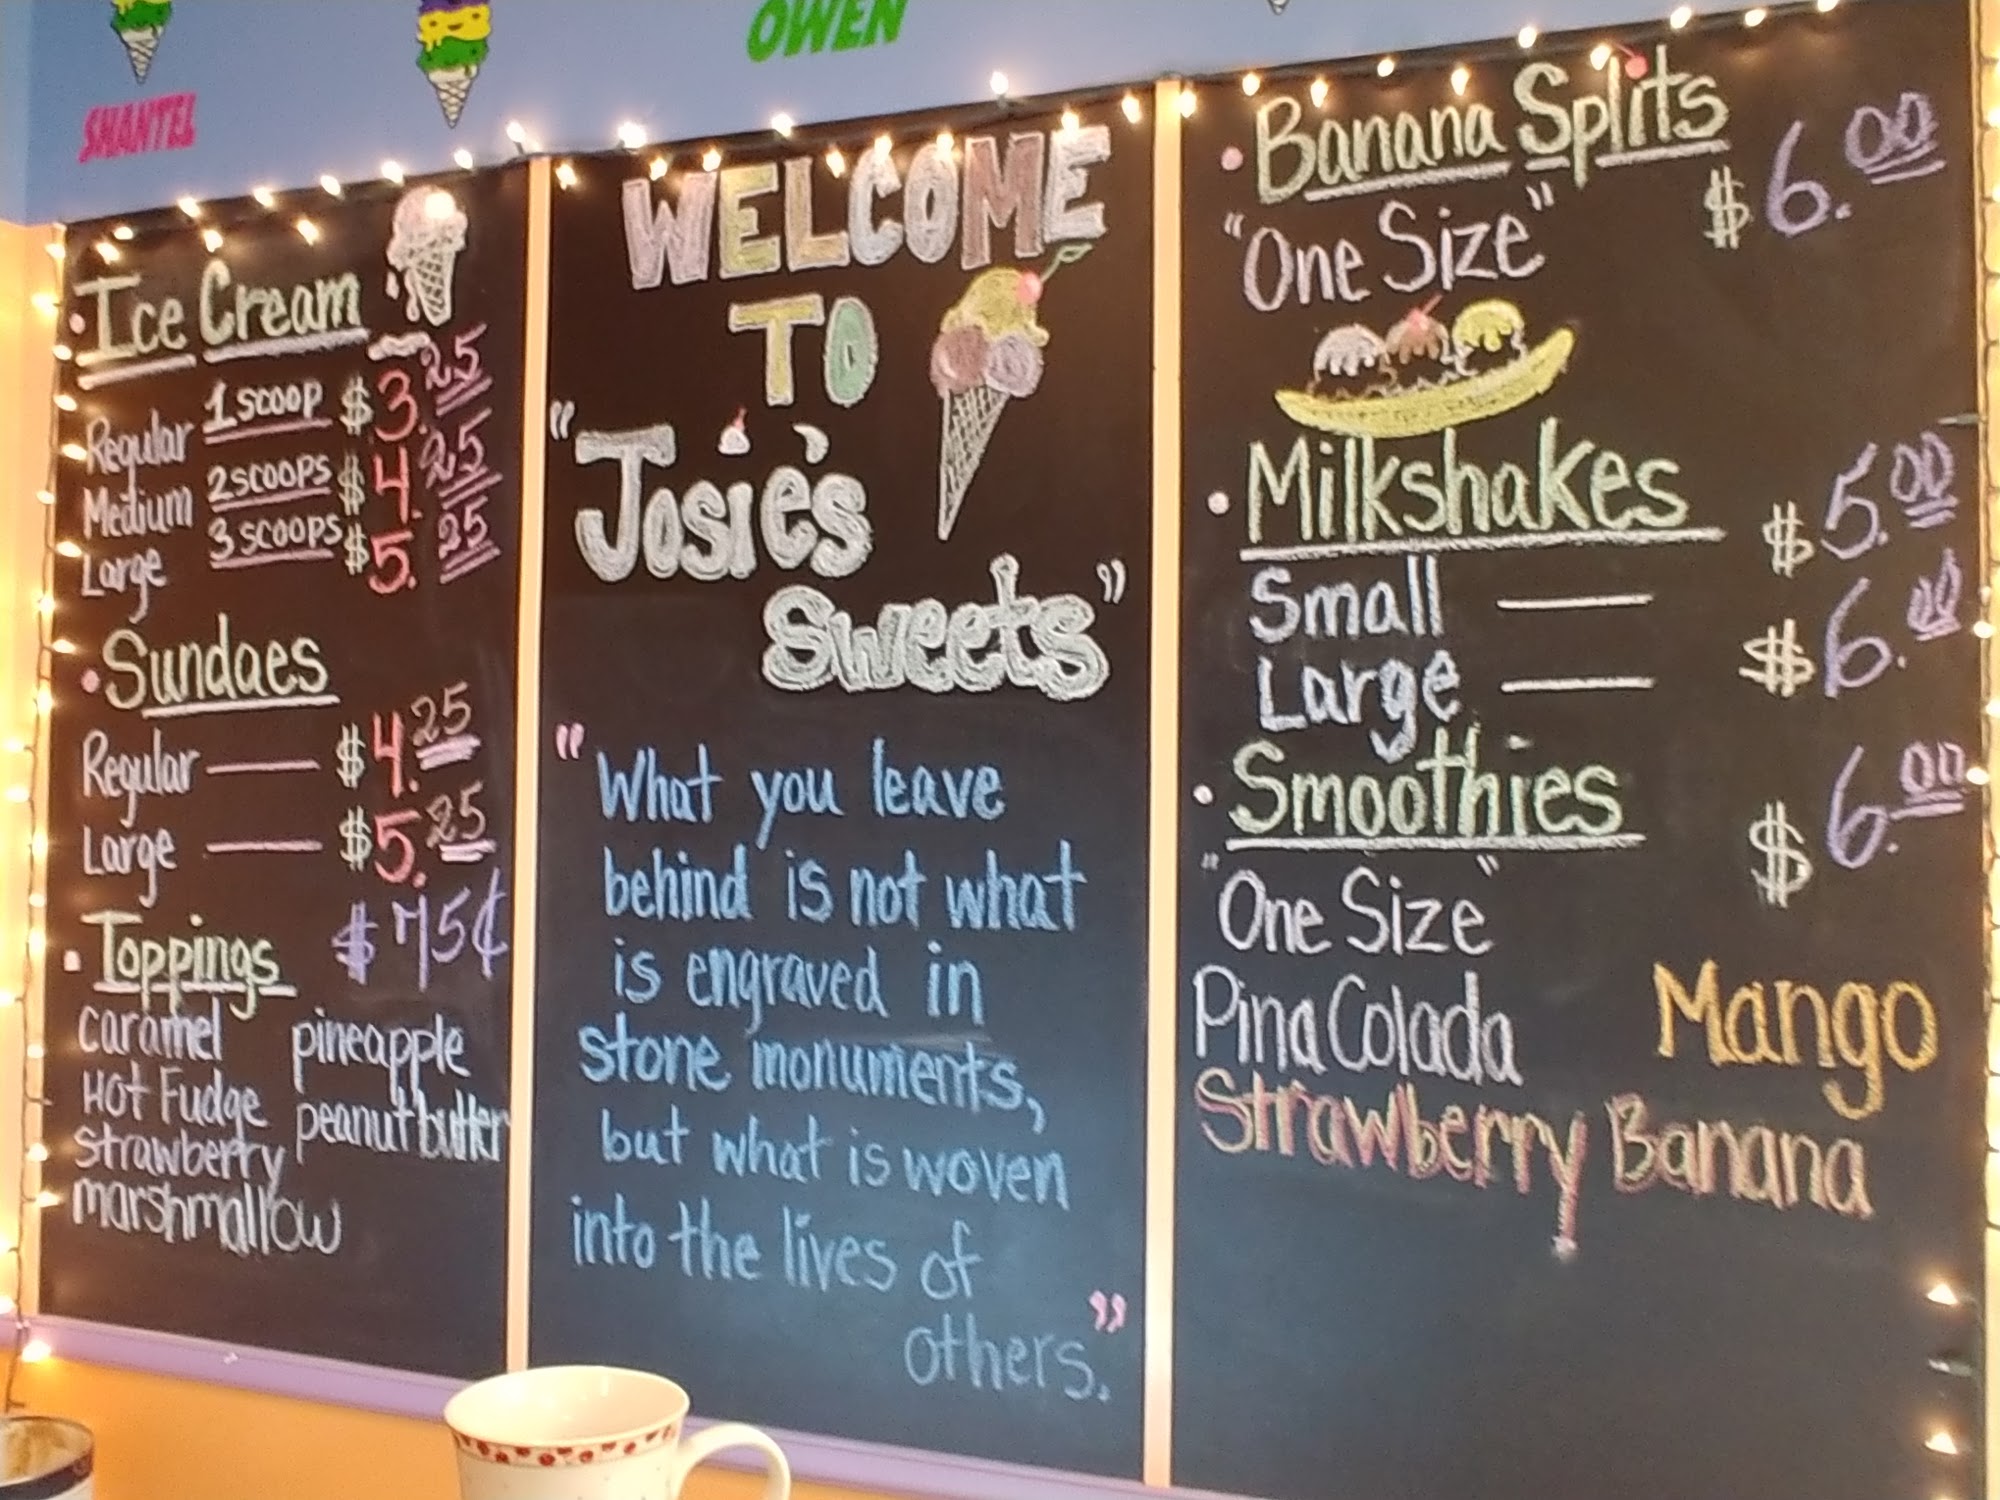 SHANTEL
OWEN
Ice Cream
Regular 1 SCOOP $3.25
Medium 2 SCOOPS $4.25
Large 3 SCOOPS $5.25
Sundaes
Regular — $4.25
Large — $5.25
Toppings $75¢
caramel pineapple
HOT Fudge peanut butter
strawberry
marshmallow
WELCOME
TO
"Josie's
Sweets"
"What you leave
behind is not what
is engraved in
stone monuments,
but what is woven
into the lives of
others."
Banana Splits $6.00
"One Size"
Milkshakes
Small — $5.00
Large — $6.00
Smoothies $6.00
"One Size"
Pina Colada Mango
Strawberry Banana